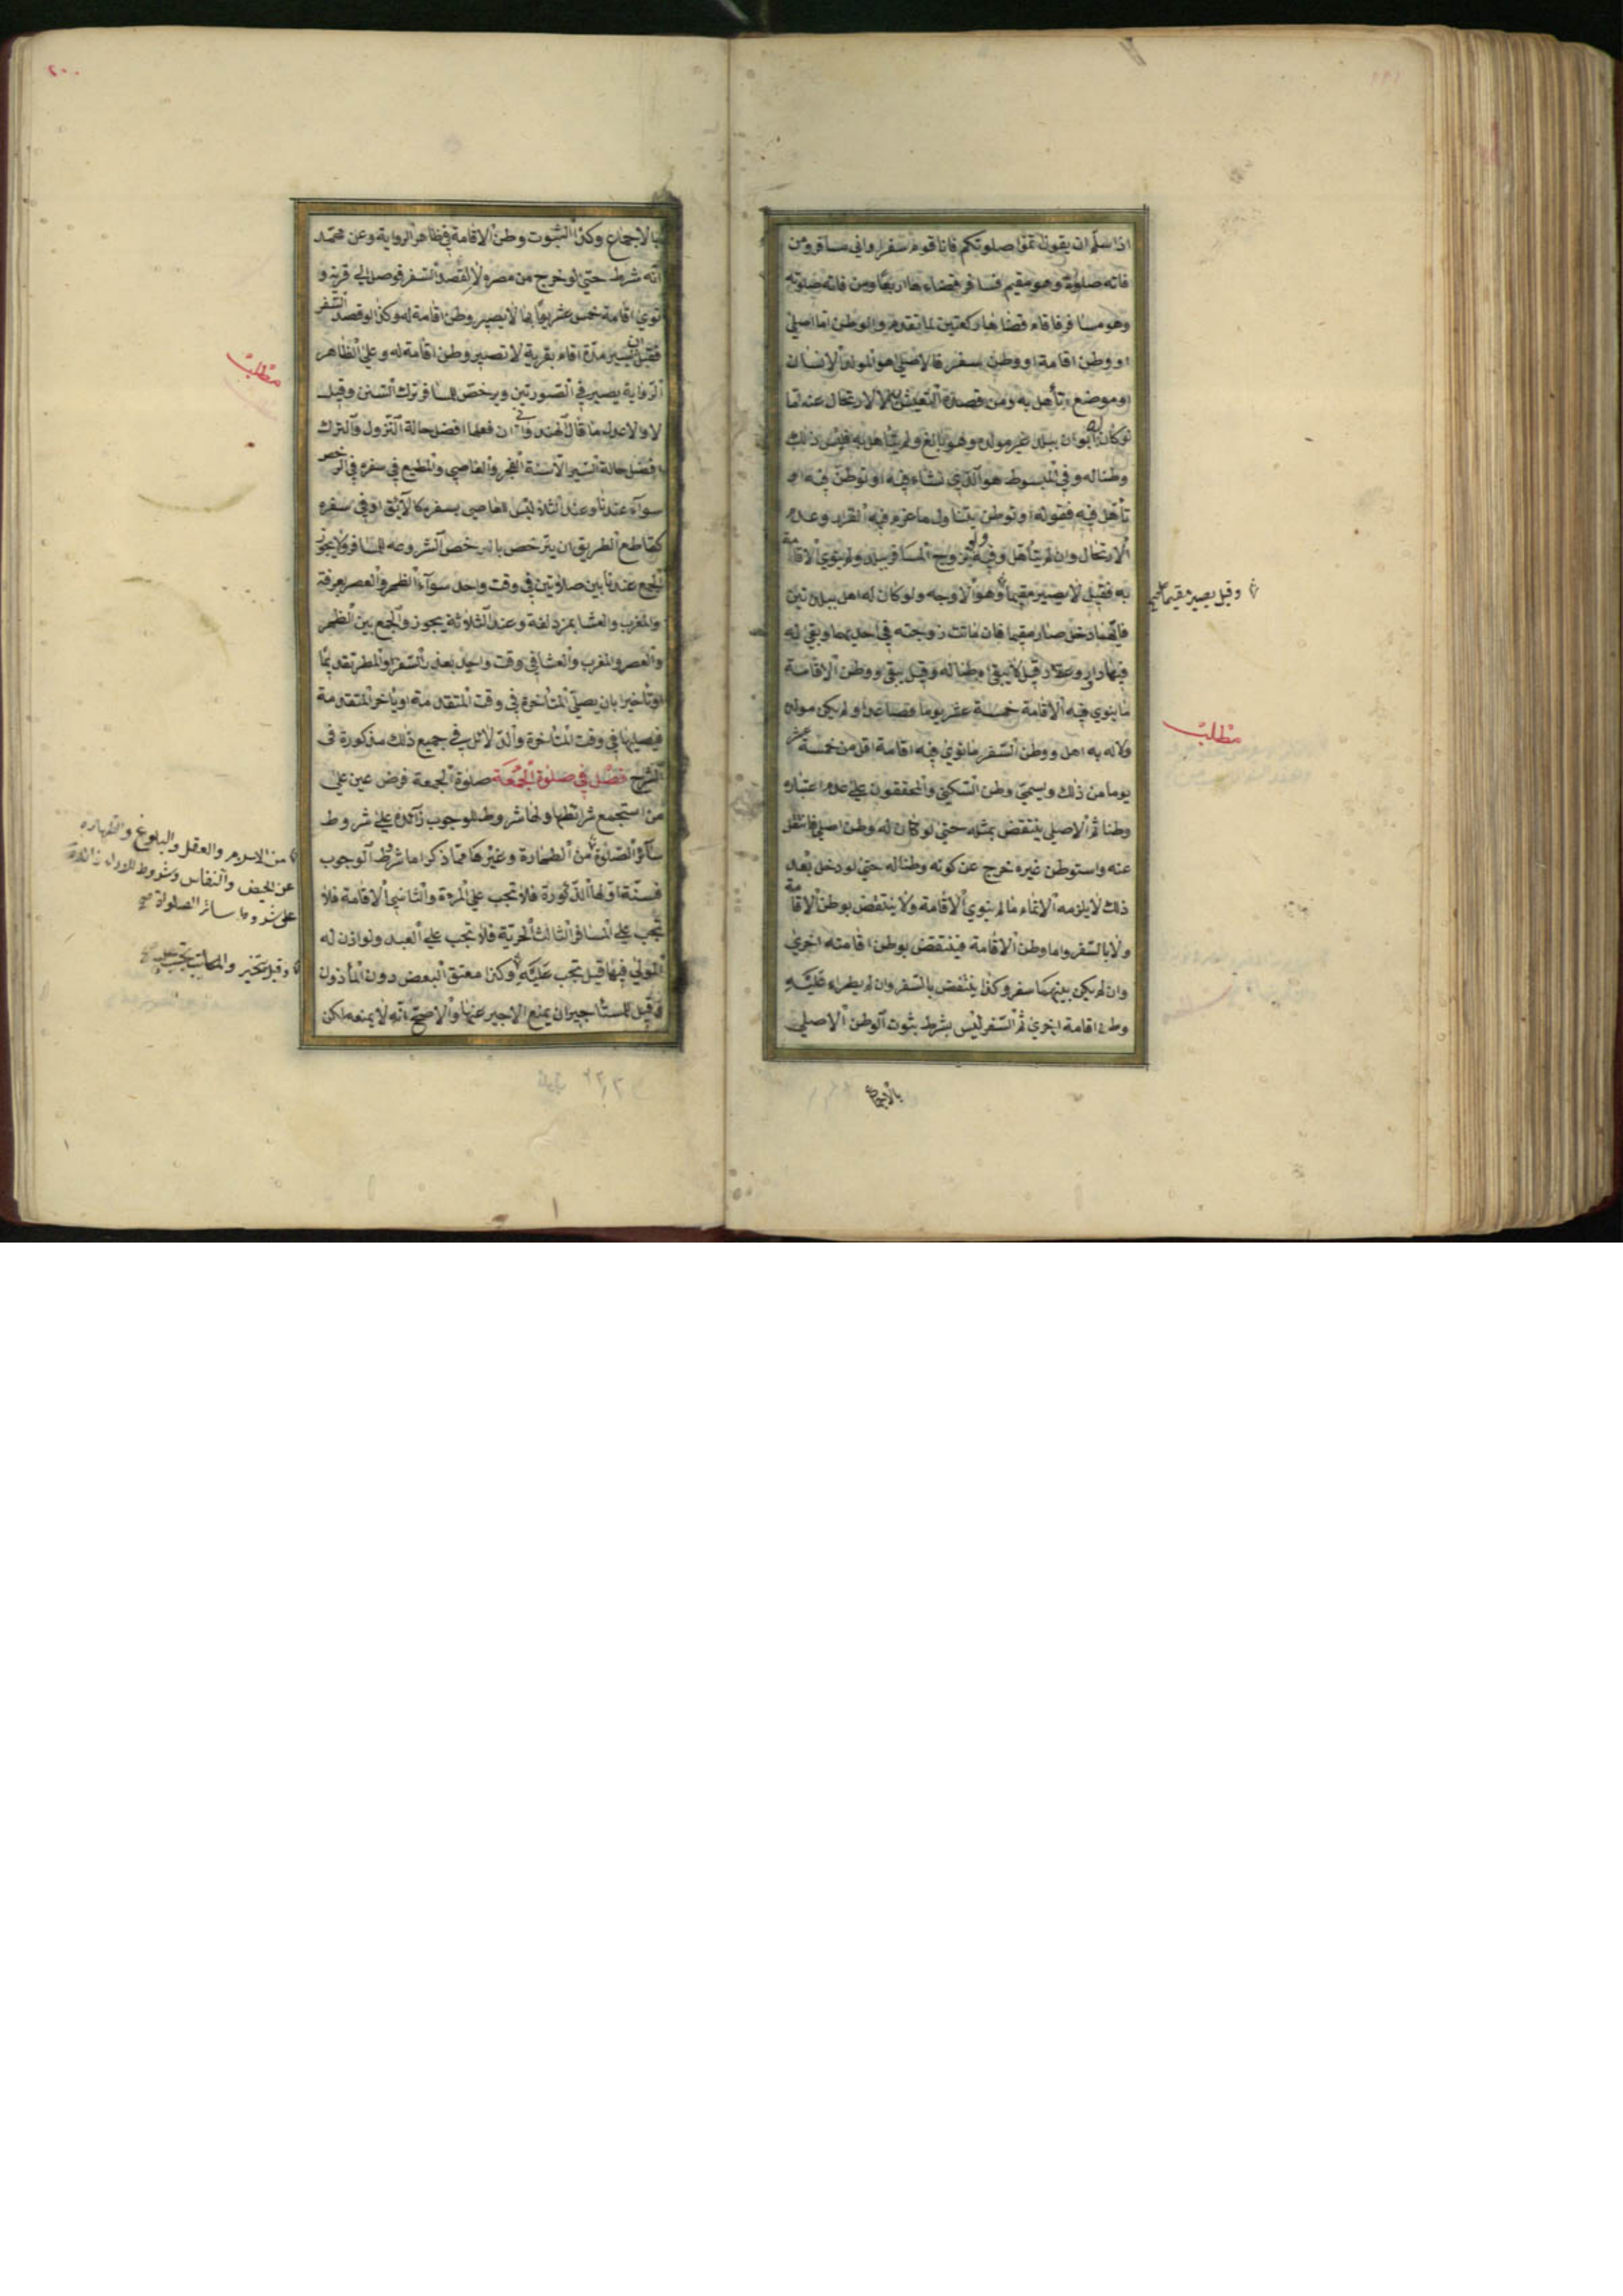 ١٩٩
اذا سلم ان يقول اتموا صلوتكم فانا قوم سفر او اني مسافر ومن
فاته صلوة وهو مقيم فسافر قضاءها اربعا ومن فاته صلوته
وهو مسافر فاقام قضاها ركعتين لما تقدم والوطن اما اصلي
او وطن اقامة او وطن سفر فالاصلي هو المولد الانسان
او موضع تأهل به ومن قصده التعيش به لا الارتحال عنه اما
لو كان له ابوان ببلد غير مولده وهو بالغ ولم يتأهل به فليس ذلك
وطنا له وفي المبسوط هو الذي نشاء فيه او توطن فيه او
تأهل فيه فقوله او توطن يتناول ما عزم فيه القرار وعدم
الارتحال وان لم يتأهل وفيه ولو تزوج المسافر ببلد ولم ينوي الاقامة
به فقيل لا يصير مقيما وهو الاوجه ولو كان له اهل ببلدتين
فايتهما دخل صار مقيما فان ماتت زوجته في احديهما وبقي له
فيها دار وعقار قيل لا يبقى وطنا له وقيل يبقى ووطن الاقامة
ما ينوي فيه الاقامة خمسة عشر يوما فصاعدا ولم يكن مولده
ولا له به اهل ووطن السفر ما نوي فيه اقامة اقل من خمسة عشر
يوما من ذلك ويسمي وطن السكني والمحققون علي عدم اعتباره
وطنا ثم الاصلي ينتقض بمثله حتي لو كان له وطن اصلي فانتقل
عنه واستوطن غيره خرج عن كونه وطنا له حتي لو دخل بعد
ذلك لا يلزمه الاتمام ما لم ينوي الاقامة ولا ينتقض بوطن الاقامة
ولا بالسفر واما وطن الاقامة فينتقض بوطن اقامته اخري
وان لم يكن بينهما سفر وكذا ينتقض بالسفر وان لم يطراء عليه
وطن اقامة اخري ثم السفر ليس بشرط بثوت الوطن الاصلي
بالاجماع
وقيل يصير مقيما
مطلب
٢٠٠
بالاجماع وكذا الثبوت وطن الاقامة في ظاهر الرواية وعن محمد
انه شرط حتي لو خرج من مصره لا لقصد السفر فوصل الي قرية و
نوي اقامة خمس عشر يوما بها لا يصير وطن اقامة له وكذا لو قصد السفر
فقبل ان يسير مدة اقام بقرية لا تصير وطن اقامة له وعلي الظاهر
الرواية يصير في الصورتين ويرخص للمسافر ترك السنن وقيل
لا والاعدل ما قال الهندواني ان فعلها افضل حالة النزول والترك
افضل حالة السير الا سنة الفجر والعاصي والمطيع في سفره في الرخص
سوآء عندنا وعند الثلاثة ليس للعاصي بسفره كالآبق او في سفره
كقاطع الطريق ان يترخص بالرخص المشروعه للمسافر ولا يجوز
الجمع عندنا بين صلاتين في وقت واحد سوآء الظهر والعصر بعرفة
والمغرب والعشا بمزدلفة وعند الثلاثة يجوز والجمع بين الظهر
والعصر والمغرب والعشا في وقت واحد بعذر السفر او المطر تقديما
او تأخيرا بان يصلي المتأخرة في وقت المتقدمة او يأخر المتقدمة
فيصليها في وقت المتأخرة والدلائل في جميع ذلك مذكورة في
الشرح فصل في صلوة الجمعة صلوة الجمعة فرض عين علي
من استجمع شرائطها ولها شروط للوجوب زائدة علي شروط
سآئر الصلوة من الطهارة وغيرها مما ذكر اما شروط الوجوب
فستة اولها الذكورة فلا تجب علي المرءة والثاني الاقامة فلا
تجب علي المسافر الثالث الحرية فلا تجب علي العبد ولو اذن له
المولي فيها قيل تجب عليه وكذا معتق البعض دون المأذون
وقيل للمستأجر ان يمنع الاجير عنها والاصح انه لا يمنعه لكن
مطلب
من الاسلام والعقل والبلوغ والطهاره
عن الحيض والنفاس وشروط للاداء زائدة
علي شروط سائر الصلوات صح
وقيل يتخير والمكاتب تجب عليه